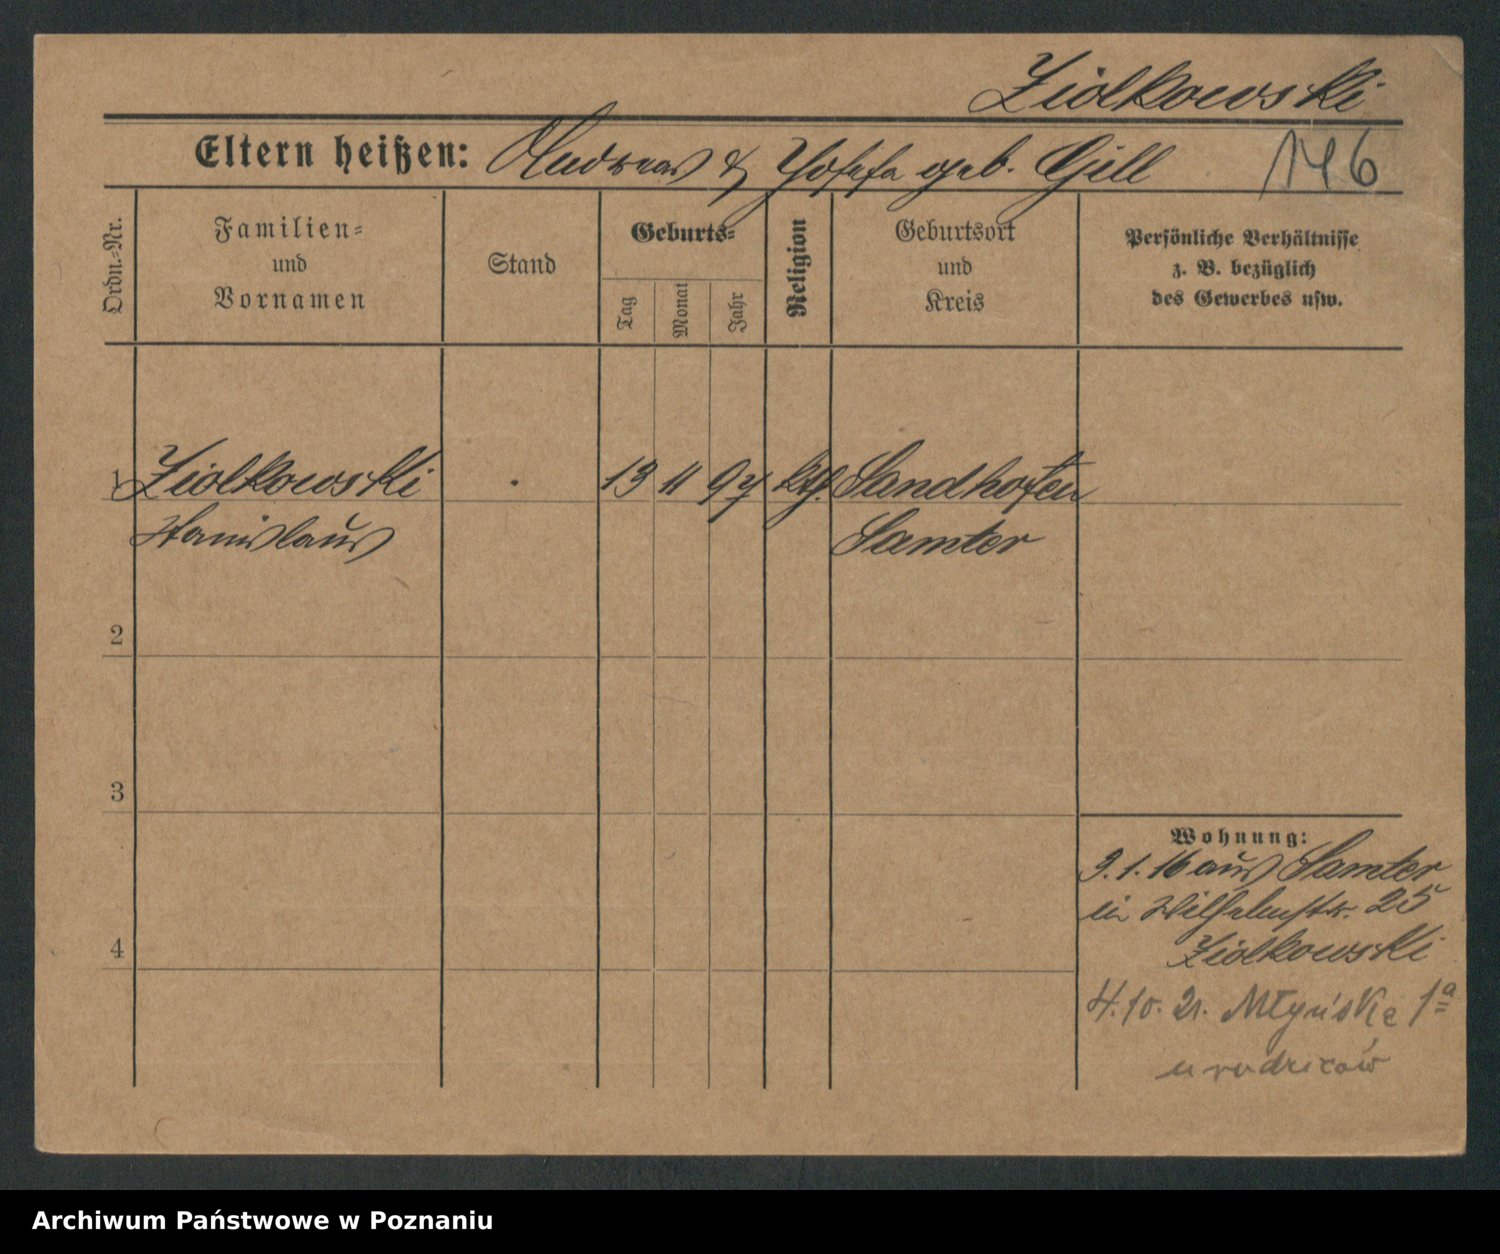 Ziolkowski
Eltern heißen: Andreas & Josefa geb. Gill 146
Ordn.-Nr.
Familien-
und
Vornamen
Stand
Geburts-
Tag
Monat
Jahr
Religion
Geburtsort
und
Kreis
Persönliche Verhältnisse
z. B. bezüglich
des Gewerbes usw.
1 Ziolkowski . 13 11 97 kth. Sandhofen
Stanislaus Samter
2
3
4
Wohnung:
3. 1. 16 aus Samter
in Wilhelmstr. 25
Ziolkowski
4. 10. 21. Młyńska 1a
u rodziców
Archiwum Państwowe w Poznaniu